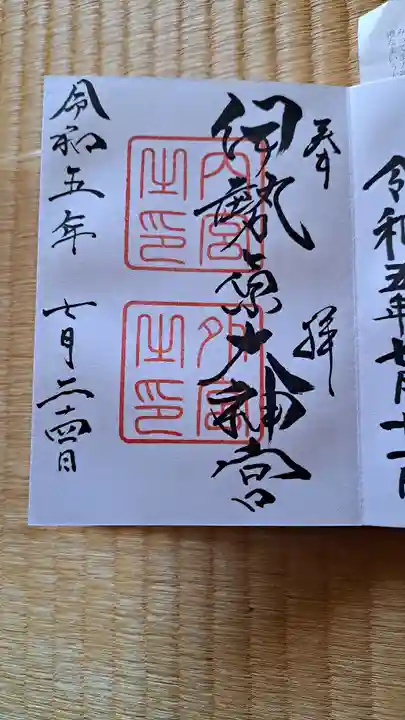 令和五年七月十一日
奉拝
伊勢原大神宮
内宮
之印
外宮
之印
令和五年 七月二十四日